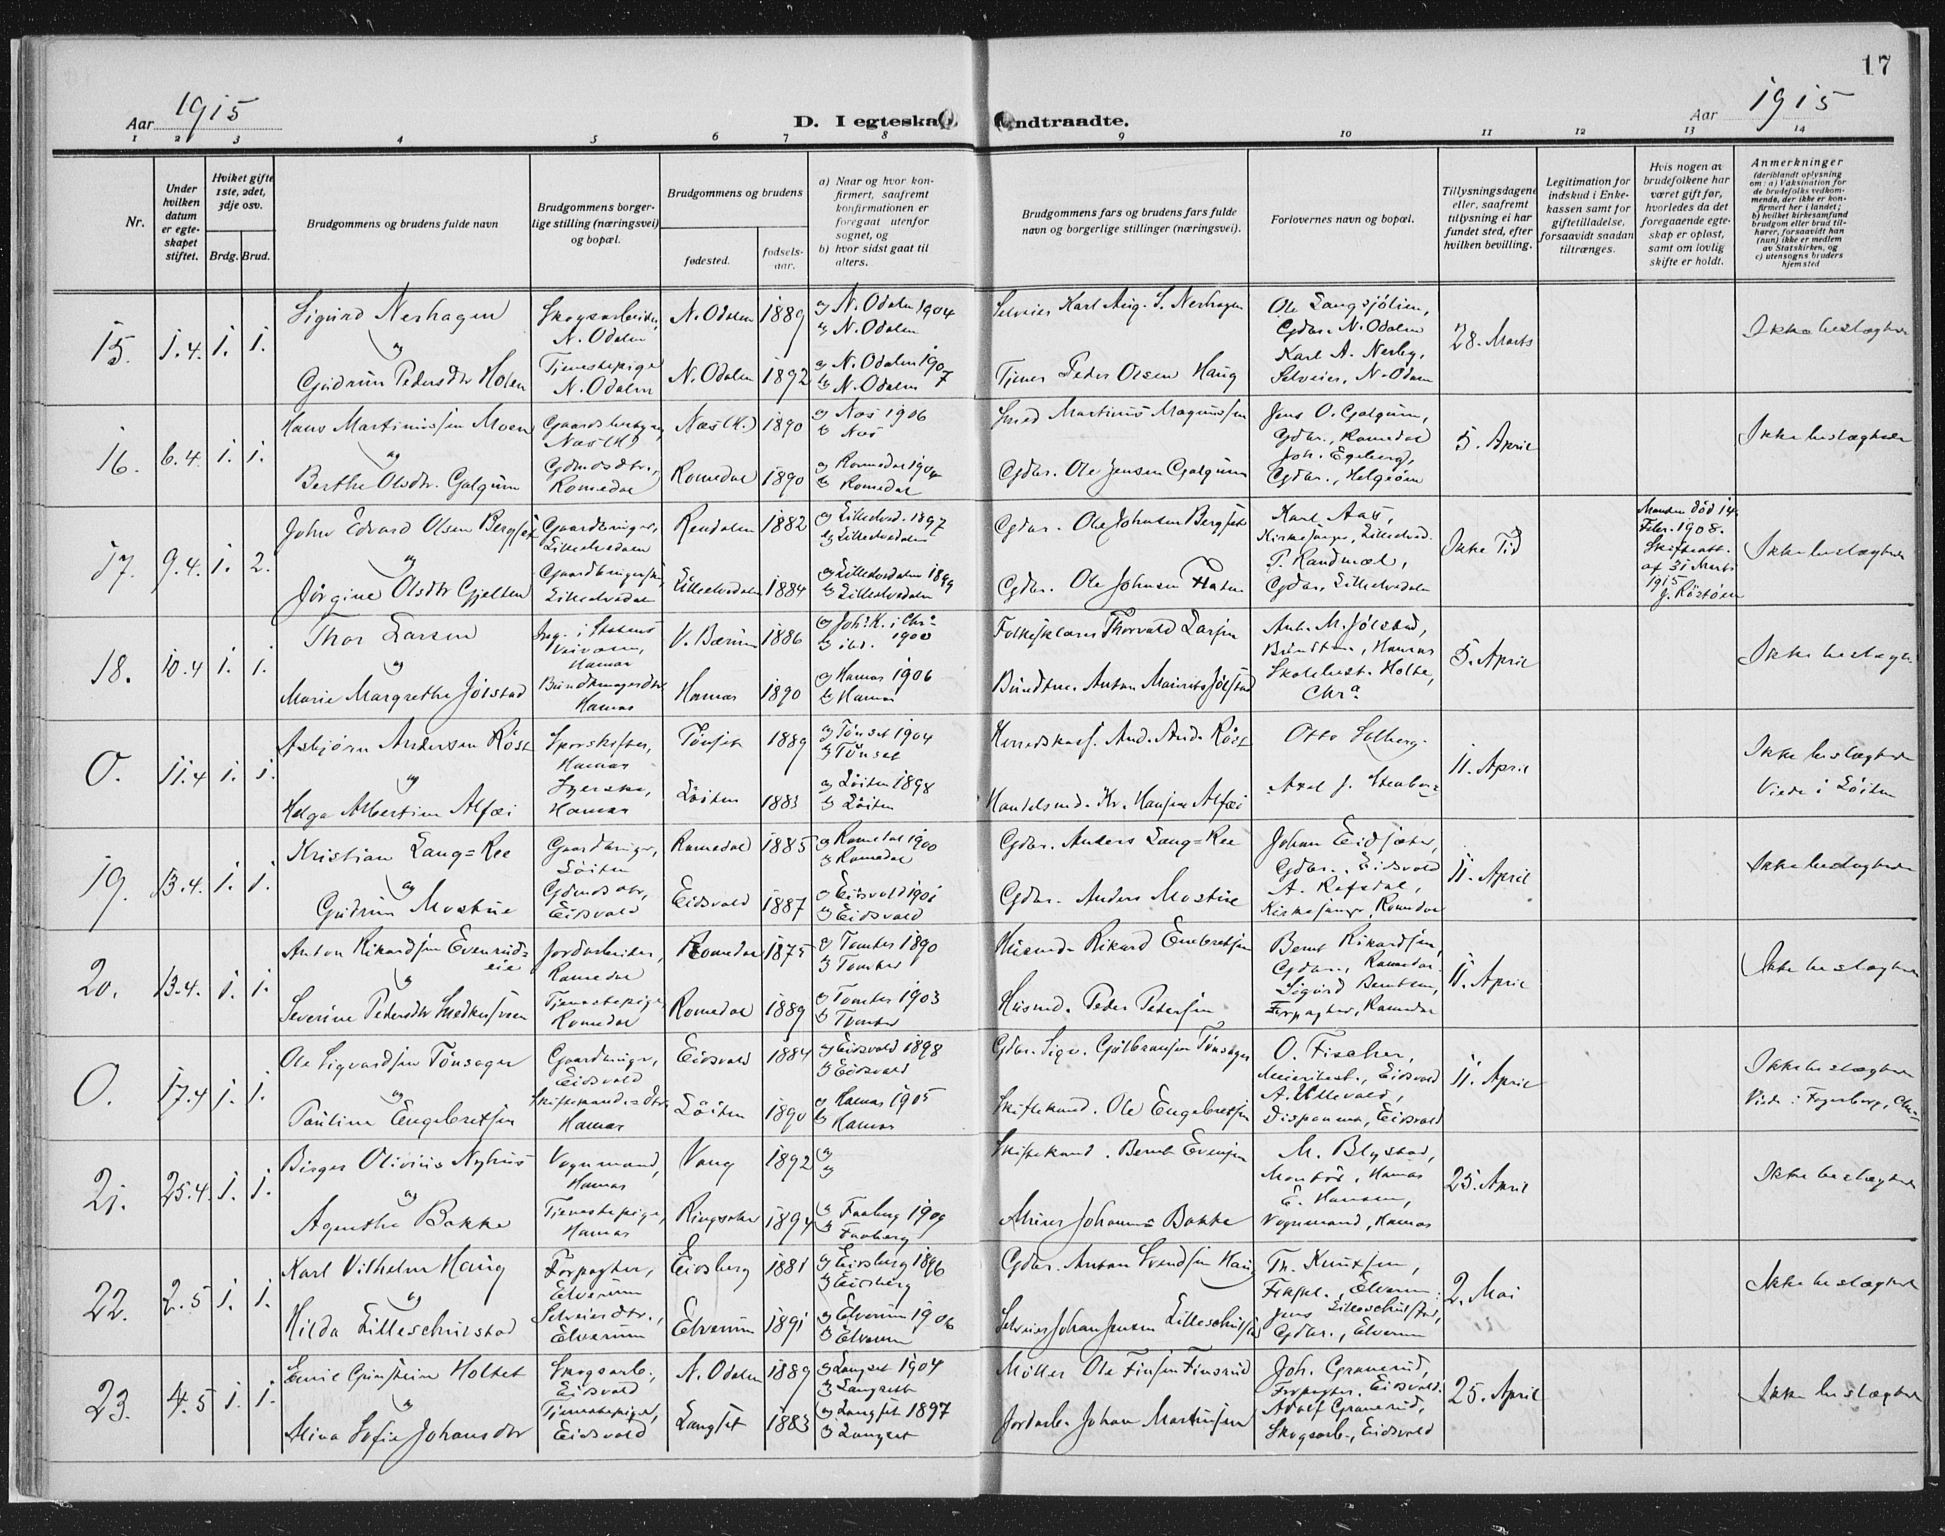 17
Aar 1915
D. I egteska
ndtraadte.
Aar 1915
1 2 3 4 5 6 7 8 9 10 11 12 13 14
Nr.
Under hvilken datum er egteskapet stiftet.
Hviket gifte 1ste, 2det, 3dje osv.
Brdg. Brud.
Brudgommens og brudens fulde navn
Brudgommens borgerlige stilling (næringsvei) og bopæl.
Brudgommens og brudens
fødested.
fødselsaar.
a) Naar og hvor konfirmert, saafremt konfirmationen er foregaat utenfor sognet, og
b) hvor sidst gaat til alters.
Brudgommens fars og brudens fars fulde navn og borgerlige stillinger (næringsvei).
Forlovernes navn og bopæl.
Tillysningsdagene eller, saafremt tillysning ei har fundet sted, efter hvilken bevilling.
Legitimation for indskud i Enkekassen samt for giftetilladelse, forsaavidt saadan tiltrænges.
Hvis nogen av brudefolkene har været gift før, hvorledes da det foregaaende egteskap er opløst, samt om lovlig skifte er holdt.
Anmerkninger (deriblandt oplysning om: a) Vaksination for de brudefolks vedkommende, der ikke er konfirmert her i landet; b) hvilket kirkesamfund brudgom eller brud tilhører, forsaavidt han (hun) ikke er medlem av Statskirken, og c) utensogns bruders hjemsted
15. 1.4. 1. 1.
Sigurd Nerhagen
og
Gudrun Pedersdtr Holen
Skogsarbeider, N. Odalen
Tjenestepige N. Odalen
N. Odalen 1889
N. Odalen 1892
a) N. Odalen 1904
b) N. Odalen
a) N. Odalen 1907
b) N. Odalen
Selveier Karl Aug. S. Nerhagen
Tjener Peder Olsen Haug
Ole Langsjølien, Gdbr. N. Odalen
Karl A. Nerby, Selveier, N. Odalen
28. Marts
Ikke beslægtede
16. 6.4. 1. 1.
Hans Martinussen Moen
og
Berthe Olsdtr. Galgum
Næs (H.)
Gdmdsdtr., Romedal
Næs (H.) 1890
Romedal 1890
a) Næs 1906
b) Næs
a) Romedal 1904
b) Romedal
Smed Martinus Magnussen
Gdbr. Ole Jensen Galgum
Jens O. Galgum, Gdbr., Romedal
Joh. Egeberg, Gdbr., Helgøen
5. April
Ikke beslægtede
17. 9.4. 1. 2.
John Edvard Olsen Bergset
og
Jørgine Olsdtr Gjelten
Gaardbruger, Lilleelvedalen
Lilleelvedalen
Rendalen 1882
Lilleelvedalen 1884
a) Lilleelved. 1897
b) Lilleelvedalen
a) Lilleelvedalen 1899
b) Lilleelvedalen
Gdbr. Ole Johnsen Bergset
Gdbr. Ole Johnsen
Karl Aas, Kirkesanger, Lilleelved.
P. Randmæl, Gdbr., Lilleelvedalen
Ikke Tid
Manden død 14. Febr. 1908. Skifteatt. af 31 Marts 1915 J. Røstøen
Ikke beslægtede
18. 10.4 1. 1.
Thor Larsen
og
Marie Margrethe Jølstad
Ing. i Statens Veivæsen, Hamar
Buntmagerdtr. Hamar
V. Bærum 1886
Hamar 1890
a) Joh. K. i Chra 1900
b) ibd.
a) Hamar 1906
b) Hamar
Folkeskolelærer Thorvald Larsen
Buntm. Anton Maurits Jølstad
Ant. M. Jølstad, Buntm., Hamar
Skolebest. Holte, Chra
5. April
Ikke beslægtede
0. 11.4 1. 1.
Asbjørn Andersen Røst
og
Helga Albertine Alfei
Sporskifter, Hamar
Syerske, Hamar
Tønset 1889
Løiten 1883
a) Tønset 1904
b) Tønset
a) Løiten 1898
b) Løiten
Herredskass. And. And. Røst
Handelsmd. Kr. Hansen Alfei
Otto Solberg
Axel J. Stenberg
11. April
Ikke beslægtede
Viede i Løiten
19. 13.4. 1. 1.
Kristian Lang=Ree
og
Gudrun Mostue
Gaardbruger, Løiten
Gdmdsdtr, Eidsvold
Romedal 1885
Eidsvold 1887
a) Romedal 1900
b) Romedal
a) Eidsvold 1901
b) Eidsvold
Gdbr. Anders Lang=Ree
Gdbr. Anders Mostue
Johan Eidsæter, Gdbr., Eidsvold
A. Refsdal, Kirkesanger, Romedal
11. April
Ikke beslægtede
20. 13.4. 1. 1.
Anton Rikardsen Evenrudseie
og
Severine Pedersdtr
Jordarbeider, Romedal
Tjenestepige, Romedal
Romedal 1875
Romedal 1889
a) Tomter 1890
b) Tomter
a) Tomter 1903
b) Tomter
Husmd. Rikard Embretsen
Husmd. Peder Pedersen
Bernt Rikardsen, Gdbr., Romedal
Sigurd Berntsen, Forpagter, Romedal
11. April
Ikke beslægtede
0. 17.4 1. 1.
Ole Sigvardsen Tønsager
og
Pauline Engebretsen
Gaardbruger, Eidsvold
Hamar
Eidsvold 1884
Løiten 1890
a) Eidsvold 1898
b) Eidsvold
a) Hamar 1905
b) Hamar
Gdbr. Sigv. Gulbransen Tønsager
Skiftekarl. Ole Engebretsen
O. Fischer, Meieribest., Eidsvold
A. Ullevold, Disponent, Eidsvold
11. April
Ikke beslægtede
Viede i Fagerborg, Chra
21. 25.4. 1. 1.
Birger Olivius Nyhus
og
Agnethe Bakke
Vognmand, Hamar
Tjenestepige, Hamar
Vang 1892
Ringsaker 1894
a)
b)
a) Faaberg 1909
b) Faaberg
Skiftekarl. Bernt Evensen
Murer Johannes Bakke
M. Blystad, Montør, Hamar
E. Hansen, Vognmand, Hamar
25. April
Ikke beslægtede
22. 2.5 1. 1.
Karl Vilhelm Haug
og
Hilda Lilleschulstad
Forpagter, Elverum
Selveierdtr., Elverum
Eidsberg 1881
Elverum 1891
a) Eidsberg 1896
b) Eidsberg
a) Elverum 1906
b) Elverum
Gdbr. Anton Svendsen Haug
Selveier Johan Jensen Lilleschulstad
Th. Knutsen, Elverum
Jens Lilleschulstad, Gdbr., Elverum
2. Mai
Ikke beslægtede
23. 4.5 1. 1.
Emil Gunstein Holtet
og
Alina Sofie Johansdtr
Skogsarb., Eidsvold
Tjenestepige, Eidsvold
N. Odalen 1889
Langset 1883
a) Langset 1904
b) Langset
a) Langset 1897
b) Langset
Møller Ole Finsen Finsrud
Jordarb. Johan Martinsen
Joh. Granerud, Forpagter, Eidsvold.
Adolf Granerud, Skogsarb., Eidsvold
25. April
Ikke beslægtede